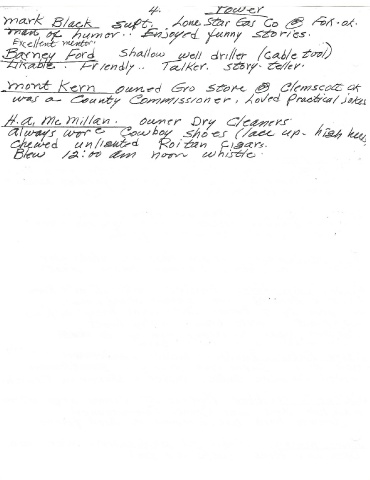 4. Tower
Mark Black supt. Lone Star Gas Co @ Fox. ok.
man of humor.. Enjoyed funny stories.
Excellent mentor.
Barney Ford Shallow well driller (cable tool)
Likable. Friendly.. Talker. story-teller.
Mont Kern owned Gro Store @ Clemscot ok
was a County Commissioner. Loved Practical jokes
H.A. McMillan. owner Dry Cleaners
always wore Cowboy shoes (lace up- high heel
Chewed unlighted Roitan Cigars.
Blew 12:00 am noon whistle.